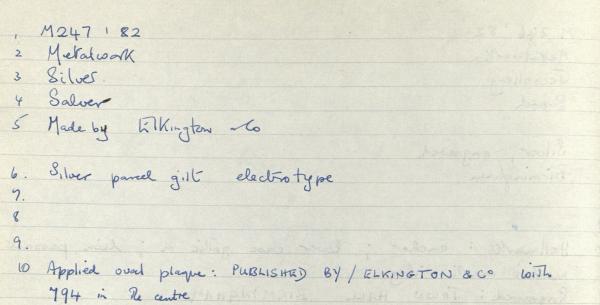 1 M247 : 82
2 Metalwork
3 Silver.
4 Salver
5 Made by Elkington & Co
6. Silver parcel gilt electrotype
7.
8
9.
10 Applied oval plaque: PUBLISHED BY / ELKINGTON & Co with
794 in the centre